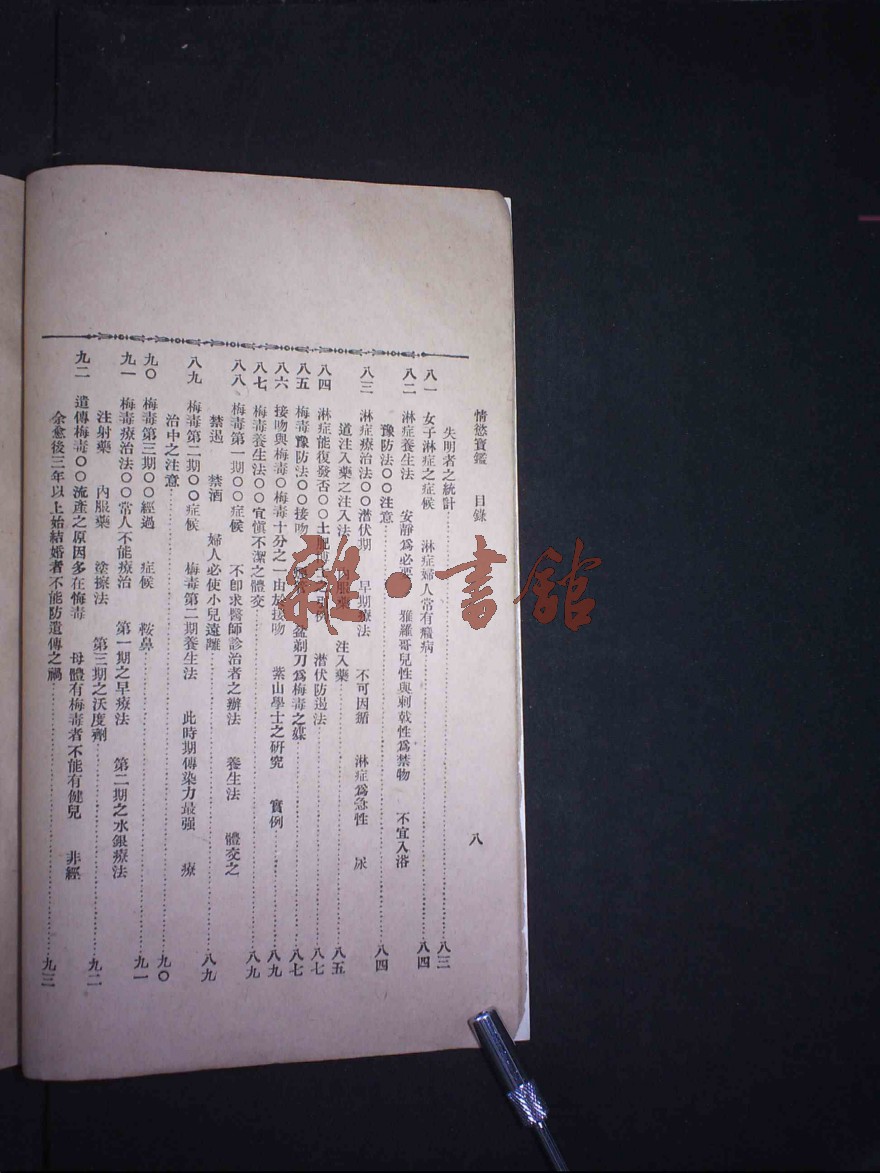 情慾寶鑑 目錄 八
失明者之統計……八三
八一 女子淋症之症候 淋症婦人常有癥病……八四
八二 淋症養生法 安靜爲必要 雅羅哥兒性與刺戟性爲禁物 不宜入浴
豫防法〇〇注意……八四
八三 淋症療治法〇〇潛伏期 早期療法 不可因循 淋症爲急性 尿
道注入藥之注入法 內服藥 注入藥……八五
八四 淋症能復發否〇〇土 之引例 潛伏防遏法……八七
八五 梅毒豫防法〇〇接吻 盆剃刀爲梅毒之媒……八七
八六 接吻與梅毒〇梅毒十分之一由於接吻 紫山學士之硏究 實例……八九
八七 梅毒養生法〇〇宜愼不潔之體交……八九
八八 梅毒第一期〇〇症候 不卽求醫師診治者之辦法 養生法 體交之
禁遏 禁酒 婦人必使小兒遠離……八九
八九 梅毒第二期〇〇症候 梅毒第二期養生法 此時期傳染力最强 療
治中之注意……九〇
九〇 梅毒第三期〇〇經過 症候 鞍鼻……九一
九一 梅毒療治法〇〇常人不能療治 第一期之早療法 第二期之水銀療法
注射藥 內服藥 塗擦法 第三期之沃度劑……九二
九二 遺傳梅毒〇〇流產之原因多在悔毒 母體有梅毒者不能有健兒 非經
余愈後三年以上始結婚者不能防遺傳之禍……九三
雜·書館